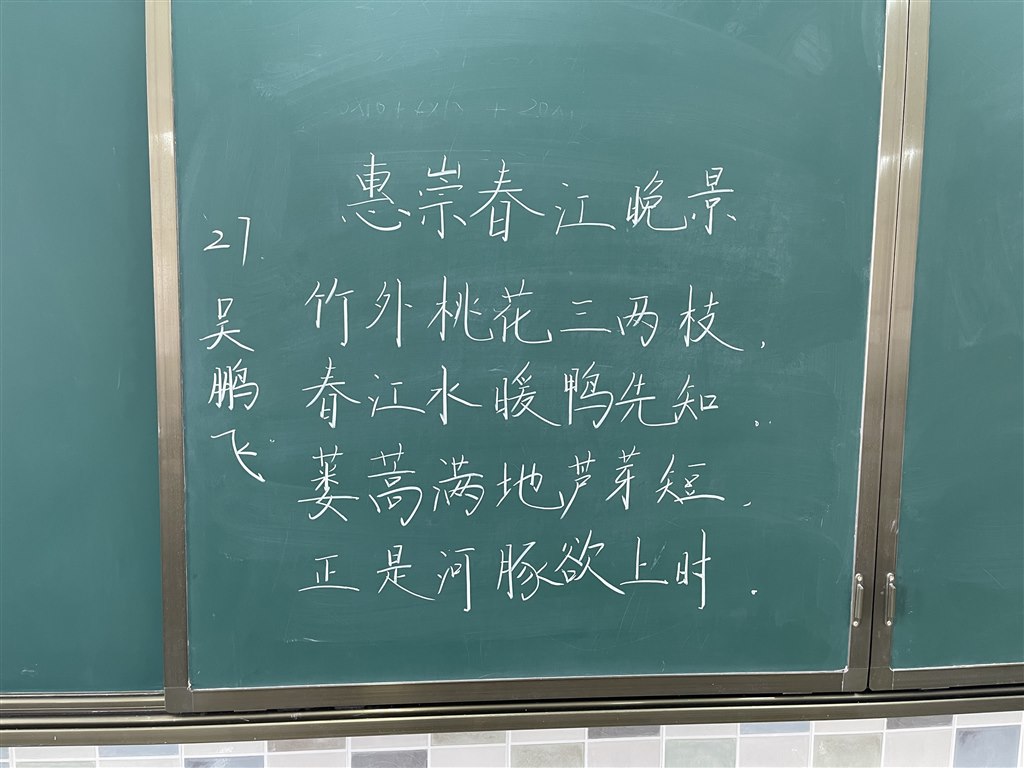 惠崇春江晚景
27.
吴鹏飞
竹外桃花三两枝,
春江水暖鸭先知.
蒌蒿满地芦芽短,
正是河豚欲上时.